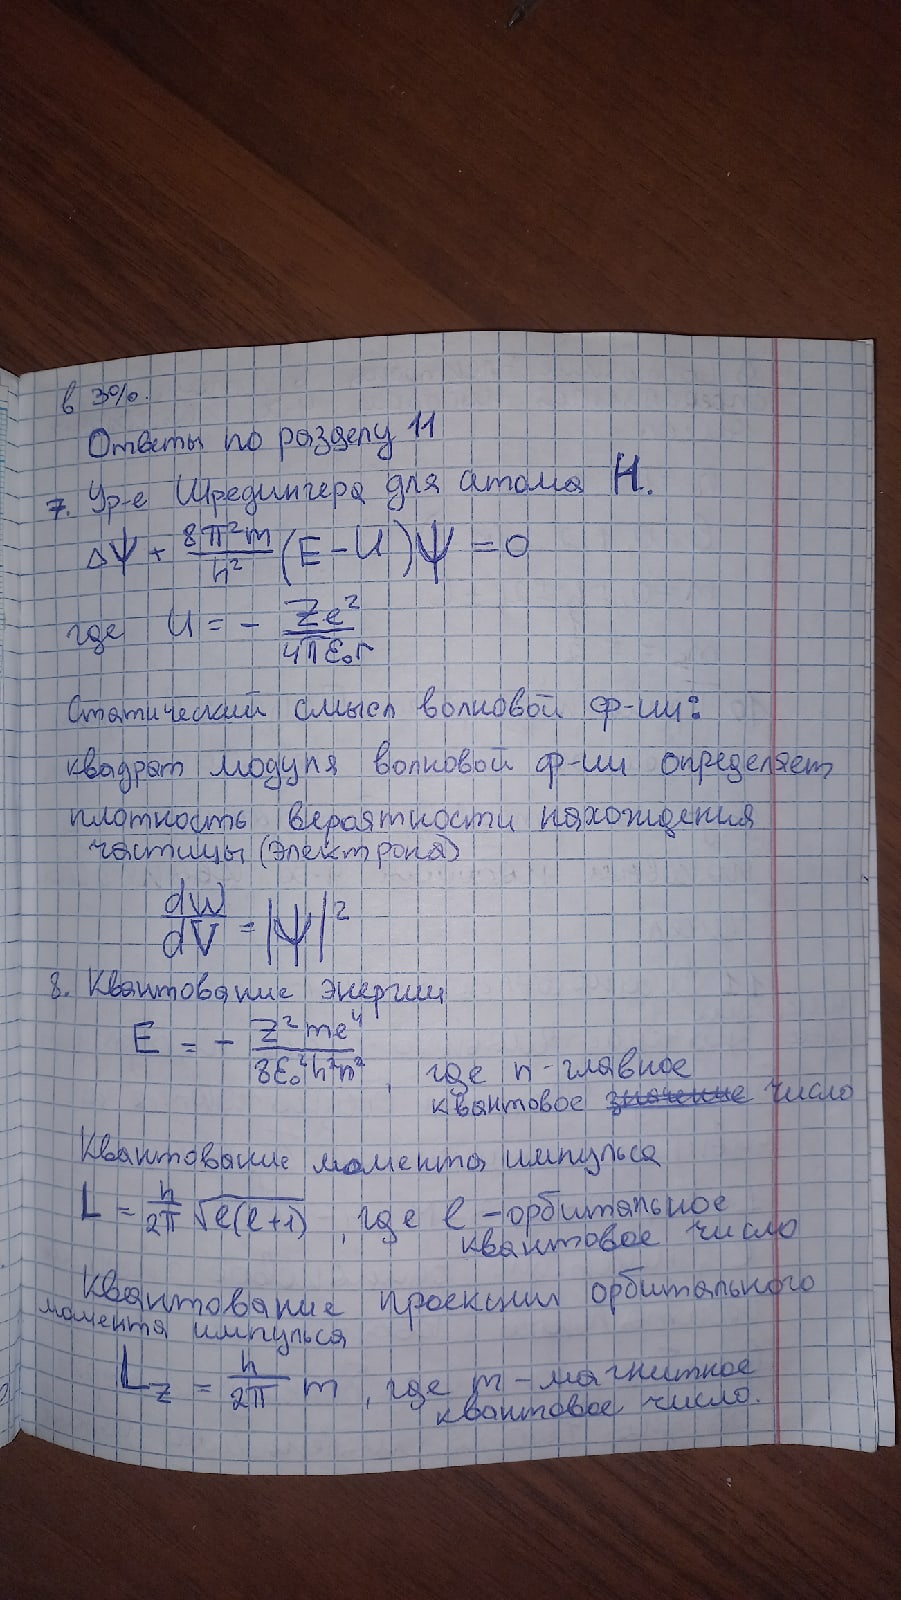 в 3%.
Ответы по разделу 11
7. Ур-е Шредингера для атома H.
ΔΨ + 8π²m/h² (E - U)Ψ = 0
где U = - Ze²/4πε₀r
Статический смысл волновой ф-ии:
квадрат модуля волновой ф-ии определяет
плотность вероятности нахождения
частицы (электрона)
dW/dV = |Ψ|²
8. Квантование энергии
E = - Z²me⁴/8ε₀²h²n² , где n - главное
квантовое значение число
Квантование момента импульса
L = h/2π √l(l+1) , где l - орбитальное
квантовое число
Квантование проекции орбитального
момента импульса
Lz = h/2π m , где m - магнитное
квантовое число.